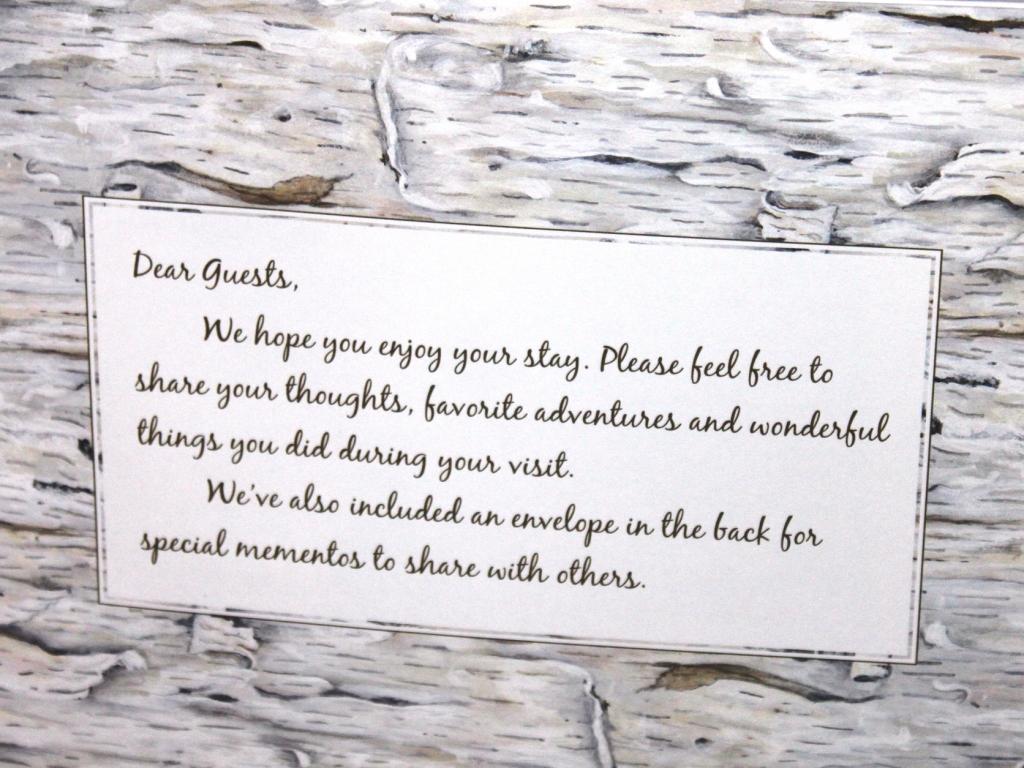 Dear Guests,
We hope you enjoy your stay. Please feel free to
share your thoughts, favorite adventures and wonderful
things you did during your visit.
We've also included an envelope in the back for
special mementos to share with others.